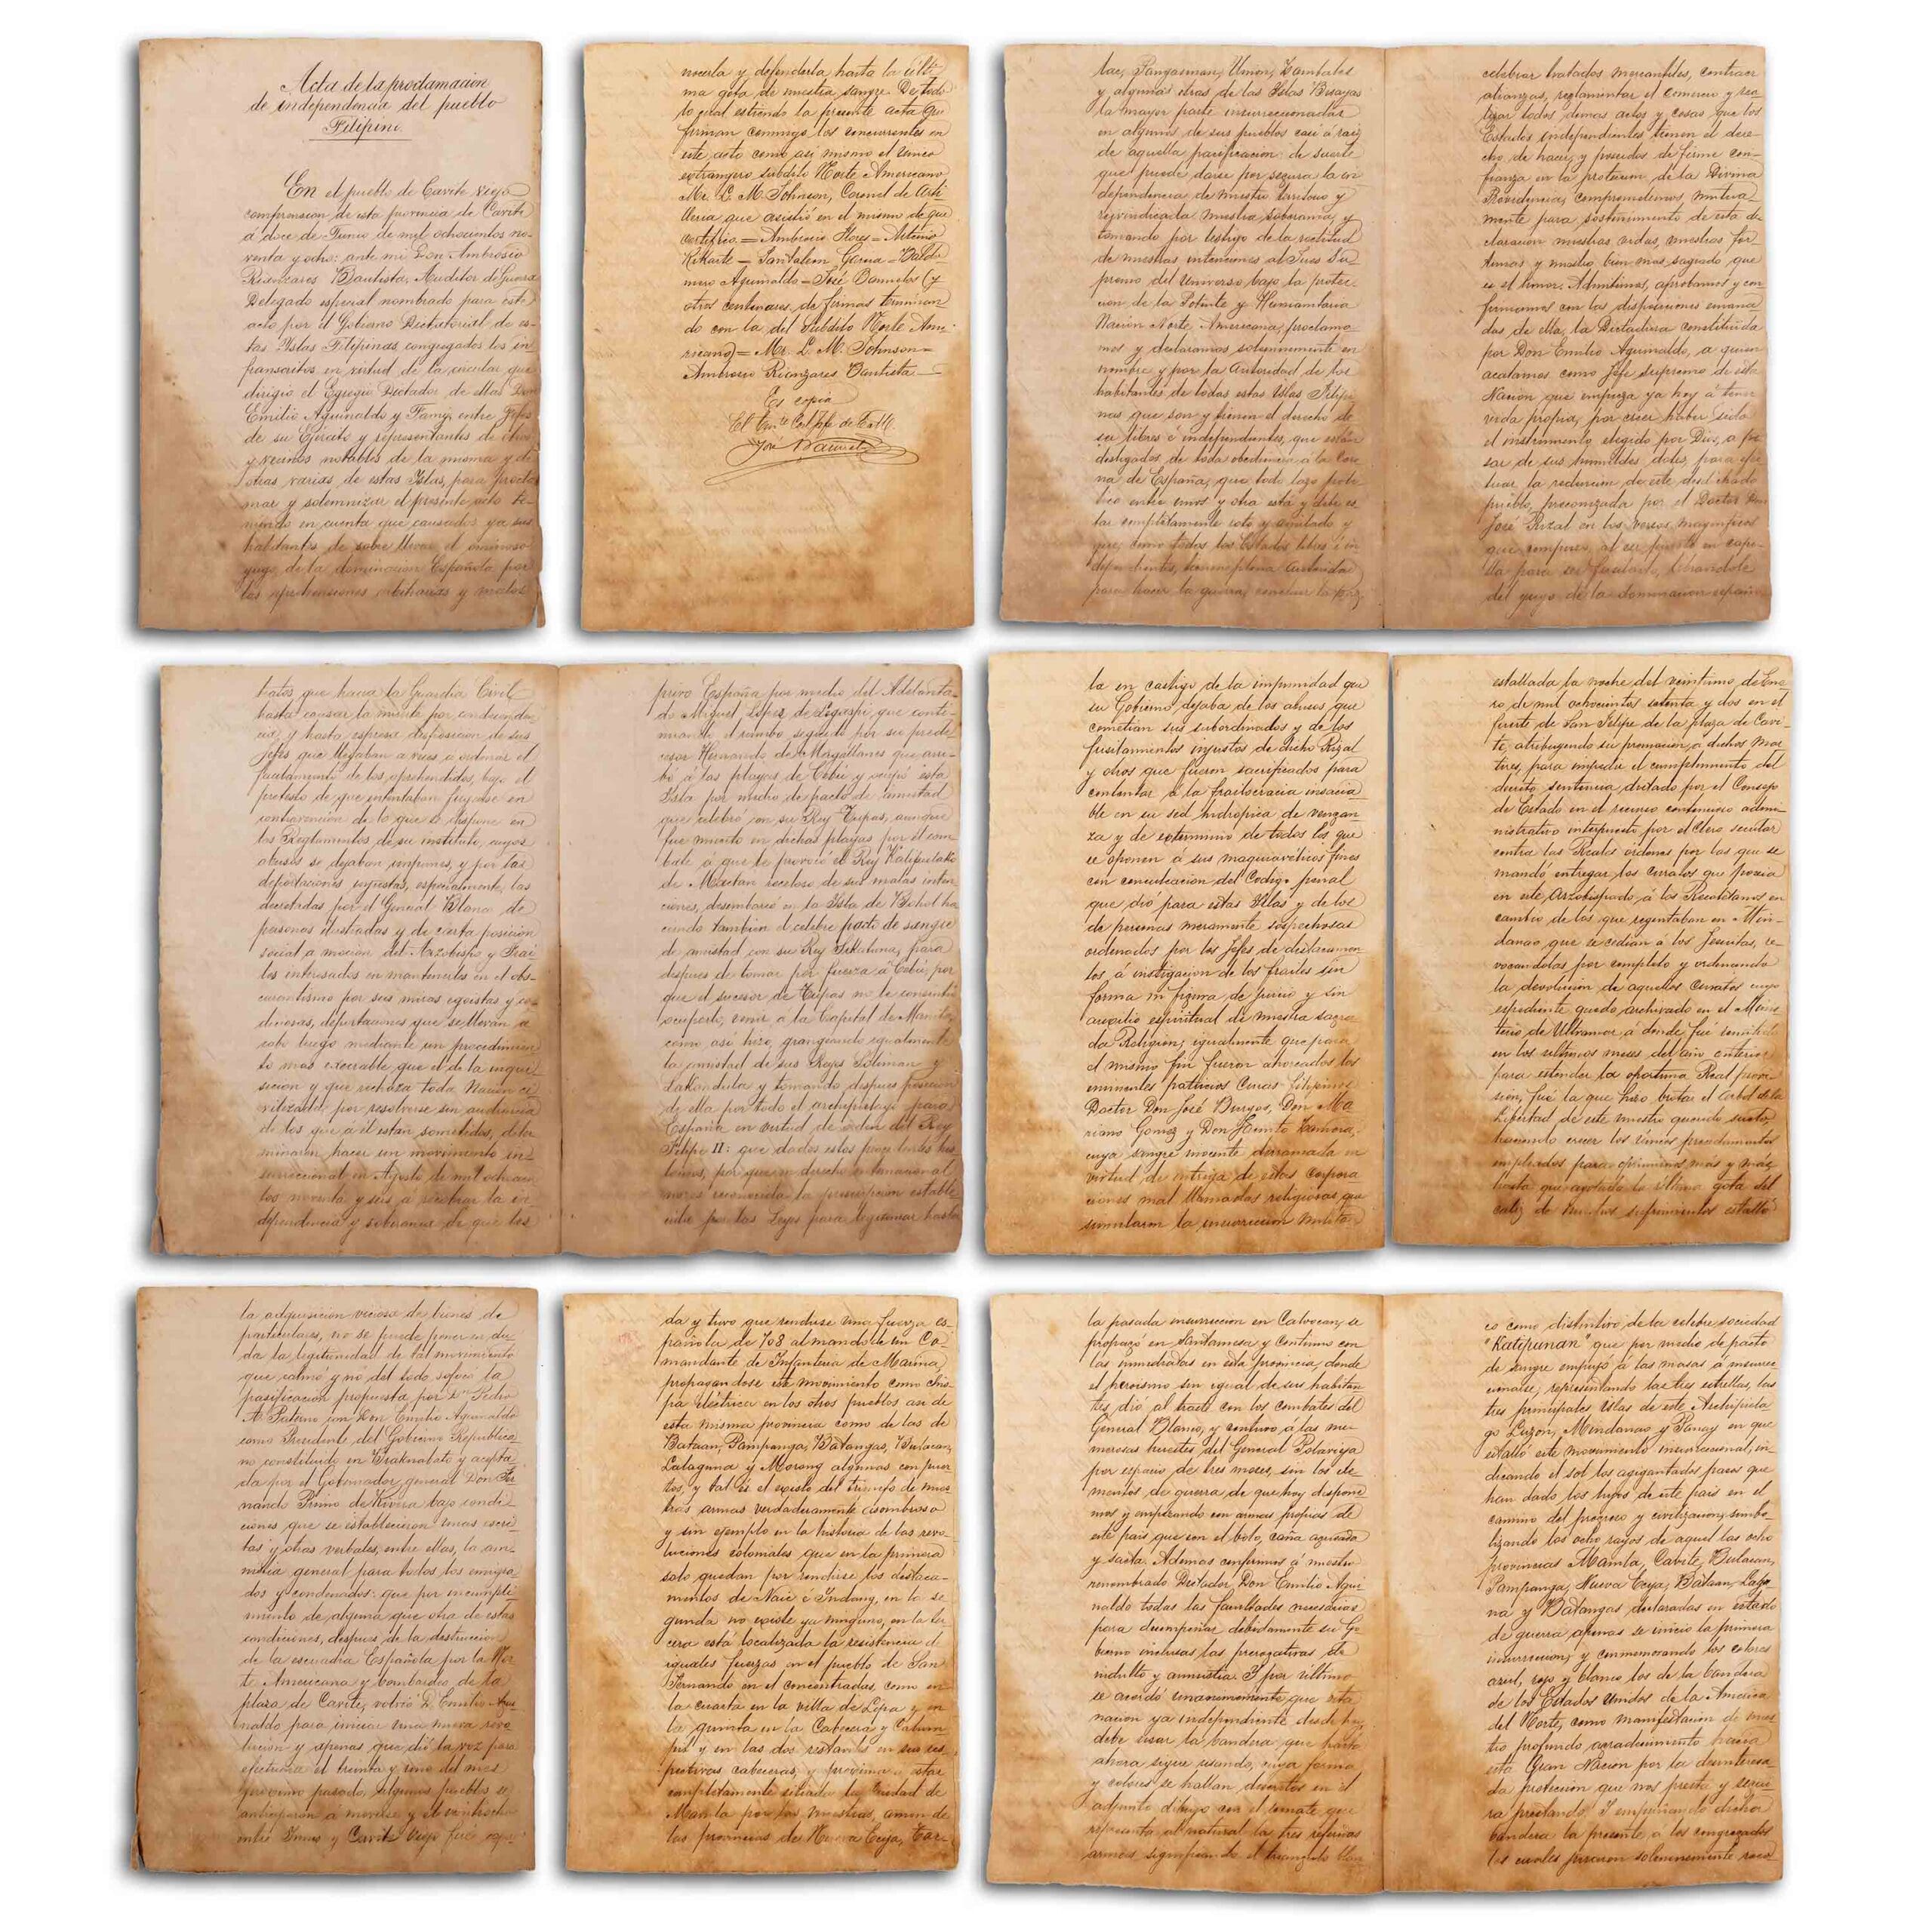 Acta de la proclamacion
de independencia del pueblo
Filipino.
En el pueblo de Cavite viejo
comprension de esta provincia de Cavite
á doce de Junio de mil ochocientos no-
venta y ocho: ante mi Don Ambrosio
Rianzares Bautista, Auditor de Guerra
Delegado especial nombrado para este
acto por el Gobierno Dictatorial de es-
tas Islas Filipinas, congregados los in
franscritos en virtud de la circular que
dirigió el Egregio Dictador de ellas Don
Emilio Aguinaldo y Famy, entre Jefes
de su Ejército y representantes de
y vecinos notables de la misma y de
otras varias de estas Islas, para procla
mar y solemnizar el presente acto te-
niendo en cuenta que cansados ya sus
habitantes de sobre llevar el ominoso
yugo de la dominacion Española por
las aprehensiones arbitrarias y malos
nocerla y defenderla hasta la últi
ma gota de nuestra sangre. De todo
lo cual estiendo la presente acta que
firman conmigo los concurrentes en
este acto como asi mismo el único
extrangero subdito Norte Americano
Mr. L. M. Johnson, Coronel de Arti
lleria que asistió en el mismo de que
certifico.=Ambrosio Flores=Artemio
Rikarte=Santalem Gorna=Baldo
mero Aguinaldo=José Banuelos (y
otros centenares de firmas terminan
do con la del Subdito Norte Ame-
ricano)=Mr. L. M. Johnson=
Ambrosio Rianzares Bautista.—
Es copia
El
José
lac, Pangasinan, Union, Zambales
y algunas otras de las Islas Bisayas
la mayor parte insurreccionadas
en algunos de sus pueblos casi á raiz
de aquella pacificacion: de suerte
que puede darse por segura la in
dependencia de nuestro territorio y
reivindicada nuestra soberania, y
tomando por testigo de la rectitud
de nuestras intenciones al Juez Su
premo del Universo bajo la protec-
cion de la Potente y Humanitaria
Nacion Norte Americana, proclama-
mos y declaramos solemnemente en
nombre y por la autoridad de los
habitantes de todas estas Islas Filipi
nas que son y tienen el derecho de
ser libres é independientes, que están
desligados de toda obediencia á la Coro
na de España, que todo lazo poli-
tico entre unos y otra está y debe es
tar completamente roto y anulado y
que, como todos los Estados libres é in
dependientes, tienen plena autoridad
para hacer la guerra, concluir la paz,
celebrar tratados mercantiles, contraer
alianzas, reglamentar el comercio y rea
lizar todos demas actos y cosas que los
Estados independientes tienen el dere-
cho de hacer, y poseidos de firme con-
fianza en la proteccion de la Divina
Providencia, comprometemos mutua-
mente para sostenimiento de esta de-
claracion nuestras vidas, nuestras for-
tunas y nuestro bien mas sagrado que
es el honor. Admitimos, aprobamos y con
firmamos con las disposiciones emana
das de ella, la Dictadura constituida
por Don Emilio Aguinaldo, a quien
acatamos como Jefe supremo de esta
Nacion que empieza ya hoy á tener
vida propia, por creer haber sido
el instrumento elegido por Dios, a pe
sar de sus humildes dotes, para efec
tuar la redencion de este desdichado
pueblo, preconizada por el Doctor Don
José Rizal en los versos magnificos
que compuso al ser puesto en cape-
lla para ser fusilado, librandole
del yugo de la dominacion española
tratos que hacia la Guardia Civil
hasta causar la muerte por condescenden
cia, y hasta espresa disposicion de sus
Jefes que llegaban a veces á ordenar el
fusilamiento de los aprehendidos, bajo el
pretesto de que intentaban fugarse en
contravencion de lo que se dispone en
los Reglamentos de su instituto, cuyos
abusos se dejaban impunes, y por las
deportaciones injustas, especialmente, las
decretadas por el General Blanco de
personas ilustradas y de cierta posicion
social a mocion del Arzobispo y Frai
les interesados en mantenerles en el obs-
curantismo por sus miras egoistas y co-
diciosas, deportaciones que se llevan á
cabo luego mediante un procedimien-
to mas execrable que el de la inqui
sicion y que rechaza toda Nacion ci
vilizada, por resolverse sin audiencia
de los que á él están sometidos, deter
minaron hacer un movimiento in-
surreccional en Agosto de mil ochocien
tos noventa y seis a recobrar la in
dependencia y soberania de que les
privó España por medio del Adelanta-
do Miguel Lopez de Legaspi, que conti-
nuando el rumbo seguido por su prede
cesor Hernando de Magallanes que arri-
bó á las playas de Cebú y ocupó esta
Isla por medio de pacto de amistad
que celebró con su Rey Tupas, aunque
fue muerto en dichas playas por el com
bate á que le provocó el Rey Kalipulako
de Mactan receloso de sus malas inten
ciones, desembarcó en la Isla de Bohol ha
ciendo tambien el celebre pacto de sangre
de amistad con su Rey Sikatuna, para
despues de tomar por fuerza á Cebú, por
que el sucesor de Tupas no le consintió
ocuparla, venir a la Capital de Manila,
como asi hizo, grangeando igualmente
la amistad de sus Reyes Soliman y
Lakandula y tomando despues posesion
de ella por todo el archipielago para
España en virtud de orden del Rey
Felipe II: que dados estos precedentes his
toricos, por que en derecho internacional
mores reconocida la prescripcion estable
cida por las Leyes para legitimar hasta
la en castigo de la impunidad que
su Gobierno dejaba de los abusos que
cometian sus subordinados y de los
fusilamientos injustos de dicho Rizal
y otros que fueron sacrificados para
contentar á la frailocracia insacia
ble en su sed hidrópica de vengan
za y de exterminio de todos los que
se oponen á sus maquiavélicos fines
con conculcacion del Codigo penal
que dió para estas Islas y de los
de personas meramente sospechosas
ordenados por los Jefes de destacamen
tos á instigacion de los frailes sin
forma ni figura de juicio y sin
auxilio espiritual de nuestra sagra
da Religion; igualmente que para
el mismo fin fueron ahorcados los
eminentes patricios Curas filipinos
Doctor Don José Burgos, Don Ma
riano Gomez y Don Jacinto Zamora,
cuya sangre inocente derramada en
virtud de intriga de estas corpora
ciones mal llamadas religiosas que
simularon la insurreccion militar
estallada la noche del veintiuno de Ene-
ro de mil ochocientos setenta y dos en el
fuerte de San Felipe de la plaza de Cavi
te, atribuyendo su promocion á dichos mar
tires, para impedir el cumplimiento del
decreto sentencia dictado por el Consejo
de Estado en el recurso contencioso admi-
nistrativo interpuesto por el Clero secular
contra las Reales ordenes por las que se
mandó entregar los curatos que poseia
en este Arzobispado á los Recoletanos en
cambio de los que regentaban en Min-
danao que se cedian á los Jesuitas, re-
vocandolas por completo y ordenando
la devolucion de aquellos Curatos cuyo
expediente quedó archivado en el Minis
terio de Ultramar, á donde fué remitido
en los ultimos meses del año anterior
para estender la oportuna Real provi-
sion, fué la que hizo brotar el árbol de la
libertad de este nuestro querido suelo,
haciendo crecer los inicuos procedimientos
empleados para oprimirnos más y más,
hasta que agotada la última gota del
caliz de nuestros sufrimientos estalló
la adquisicion viciosa de bienes de
particulares, no se puede poner en du-
da la legitimidad de tal movimiento
que calmó y no del todo sofocó la
pacificacion propuesta por Dn Pedro
A. Paterno con Don Emilio Aguinaldo
como Presidente del Gobierno Republica-
no constituido en Biaknabató y acepta-
da por el Gobernador general Don Fer
nando Primo de Rivera bajo condi-
ciones que se establecieron unas escri-
tas y otras verbales, entre ellas, la am-
nistia general para todos los emigra-
dos y condenados: que por incumpli-
miento de alguna que otra de estas
condiciones, despues de la destruccion
de la escuadra Española por la Nor
te Americana y bombardeo de la
plaza de Cavite, volvió D. Emilio Agui-
naldo para iniciar una nueva revo
lucion y apenas que dió la voz para
efectuarla el treinta y uno del mes
próximo pasado, algunos pueblos se
anticiparon á moverse y el veintiocho
entre Imus y Cavite viejo fué
da y tuvo que rendirse una fuerza es-
pañola de 708 al mando de un Co-
mandante de Infanteria de Marina,
propagandose este movimiento como chis-
pa eléctrica en los otros pueblos asi de
esta misma provincia como de las de
Bataan, Pampanga, Batangas, Bulacan,
Lalaguna y Morong algunas con puer
tos, y tal es el exito del triunfo de nues
tras armas verdaderamente asombroso
y sin ejemplo en la historia de las revo
luciones coloniales que en la primera
solo quedan por rendirse los destaca-
mentos de Naic é Indang, en la se
gunda no existe ya ninguno, en la ter
cera está localizada la resistencia de
iguales fuerzas en el pueblo de San
Fernando en él concentradas, como en
la cuarta en la villa de Lipa y en
la quinta en la Cabecera y Calum
pit y en las dos restantes en sus res-
pectivas cabeceras, y proxima á estar
completamente sitiada la Ciudad de
Manila por las nuestras, amen de
las provincias de Nueva Ecija, Tar-
la pasada insurreccion en Caloocan, se
propagó en Santamesa y continuó con
las inmediatas en esta provincia donde
el heroismo sin igual de sus habitan
tes dió al traste con los combates del
General Blanco, y contuvo á las nu-
merosas huestes del General Polavieja
por espacio de tres meses, sin los ele-
mentos de guerra de que hoy dispone
mos y empezando con armas propias de
este pais que son el bolo, caña aguzada
y saeta. Ademas conferimos á nuestro
renombrado Dictador Don Emilio Agui
naldo todas las facultades necesarias
para desempeñar debidamente su Go
bierno inclusas las prerogativas de
indulto y amnistia. Y por último
se acordó unanimemente que esta
nacion ya independiente desde hoy
debe usar la bandera que hasta
ahora sigue usando, cuya forma
y colores se hallan descritos en el
adjunto dibujo con el remate que
representa al natural las tres referidas
armas significando el triangulo blan
co como distintivo de la celebre sociedad
"Katipunan" que por medio de pacto
de sangre empujó á las masas á insurrec
cionarse; representando las tres estrellas, las
tres principales Islas de este Archipiela
go Luzon, Mindanao y Panay en que
estalló este movimiento insurreccional, in
dicando el sol los agigantados pasos que
han dado los hijos de este pais en el
camino del progreso y civilizacion, simbo
lizando los ocho rayos de aquel las ocho
provincias Manila, Cavite, Bulacan,
Pampanga, Nueva Ecija, Bataan, Lagu
na y Batangas declaradas en estado
de guerra, apenas se inició la primera
insurreccion; y conmemorando los colores
azul, rojo y blanco los de la bandera
de los Estados Unidos de la América
del Norte, como manifestacion de nues
tro profundo agradecimiento hacia
esta Gran Nacion por la desinteresa
da proteccion que nos presta y segui-
ra prestando. Y empuñando dicha
bandera la presente á los congregados
los cuales juraron solemnemente reco